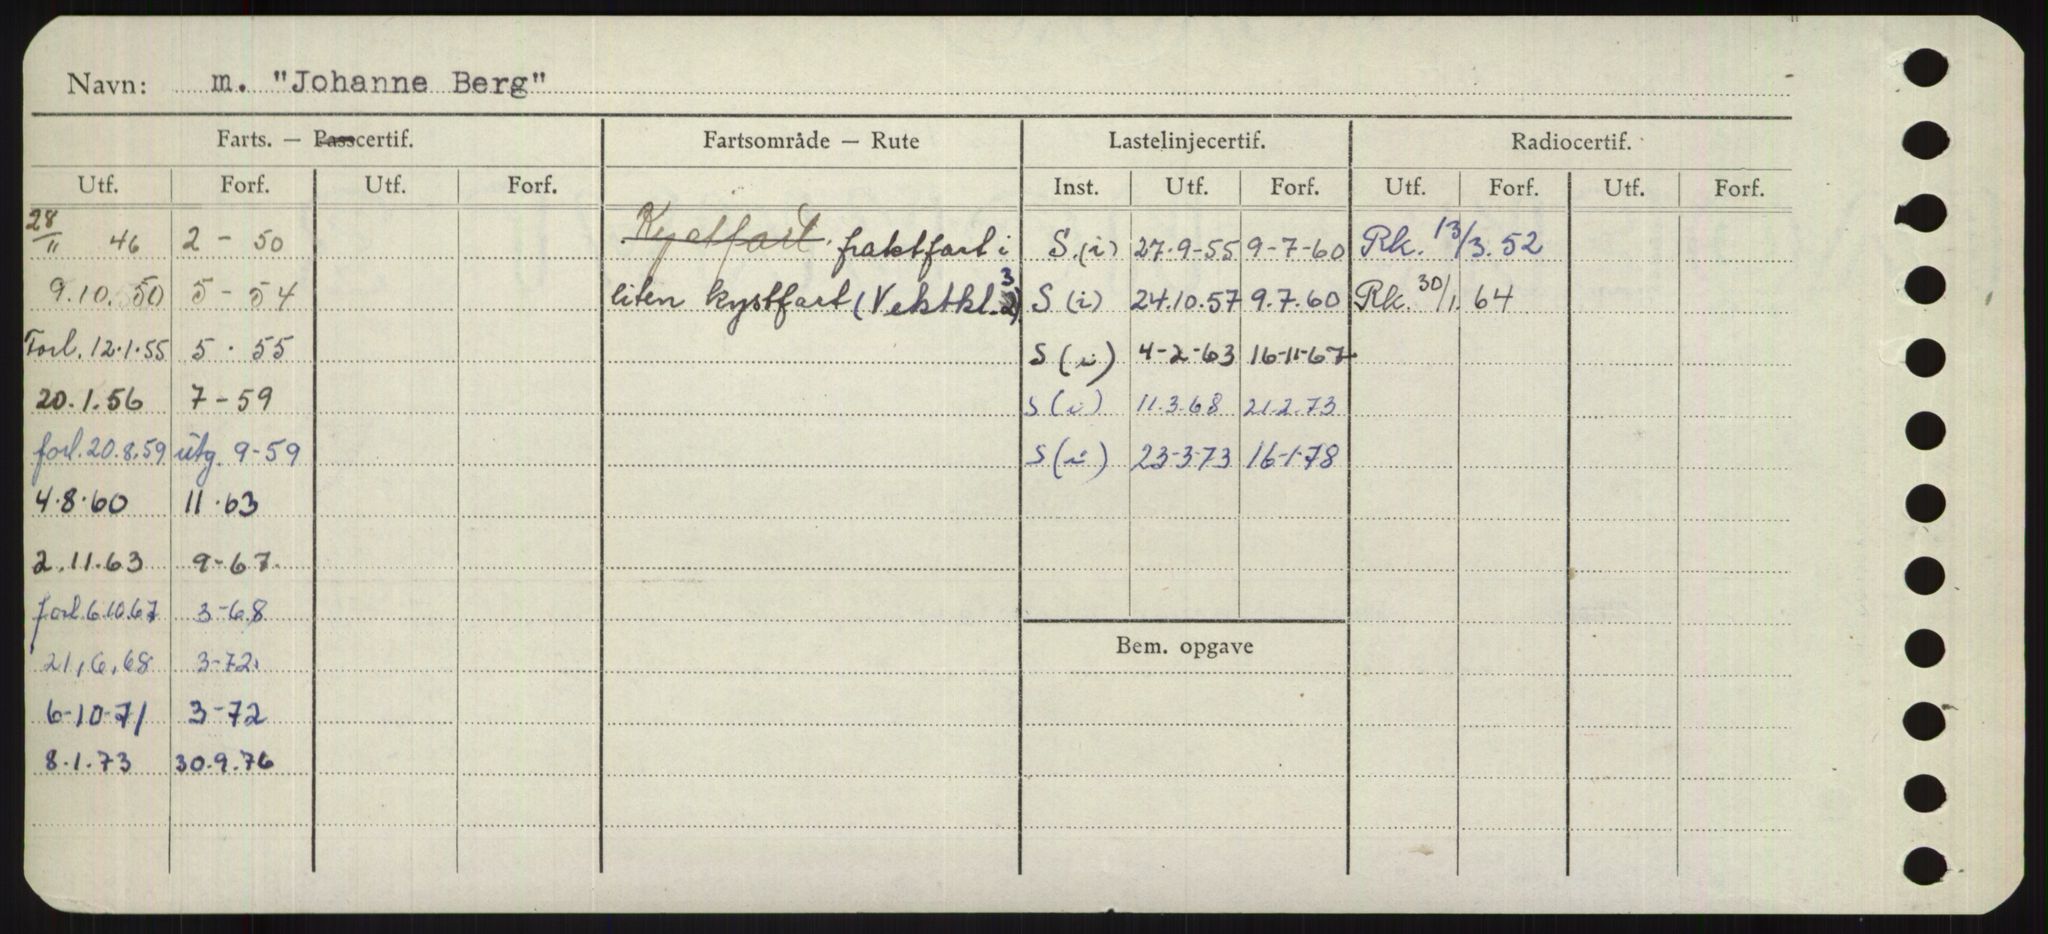 Navn: m. "Johanne Berg"
Farts. — Passcertif. Fartsområde — Rute Lastelinjecertif. Radiocertif.
Utf. Forf. Utf. Forf. Inst. Utf. Forf. Utf. Forf. Utf. Forf.
28/11 46 2 - 50 Kystfart. fraktfart i S.(i) 27.9-55 9-7-60 Rk. 13/3.52
9.10.50 5 - 54 liten kystfart (Vektkl. 2) 3 S (i) 24.10.57 9.7.60 Rk. 30/1. 64
Forl. 12.1.55 5 . 55 S (i) 4-2-63 16-11-67
20.1.56 7-59 S (i) 11.3.68 21.2.73
forl. 20.8.59 utg. 9-59 S (i) 23-3-73 16-1-78
4.8.60 11.63
2.11.63 9-67
forl. 6.10.67 3-68
Bem. opgave
21,6,68 3-72.
6-10-71 3-72
8.1.73 30.9.76